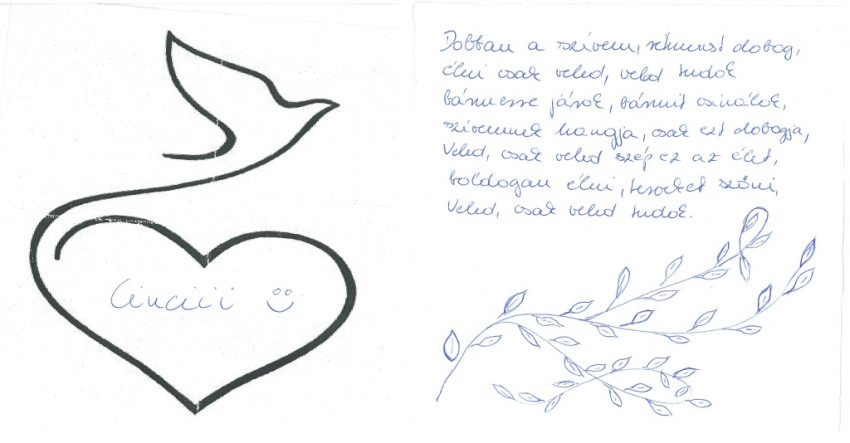 Cinciii
Dobban a szívem, ritmust dobog,
élni csak veled, veled tudok
bármerre járok, bármit csinálok,
szívemnek hangja, csak ezt dobogja,
Veled, csak veled szép ez az élet,
boldogan élni, terveket szőni,
Veled, csak veled tudok.